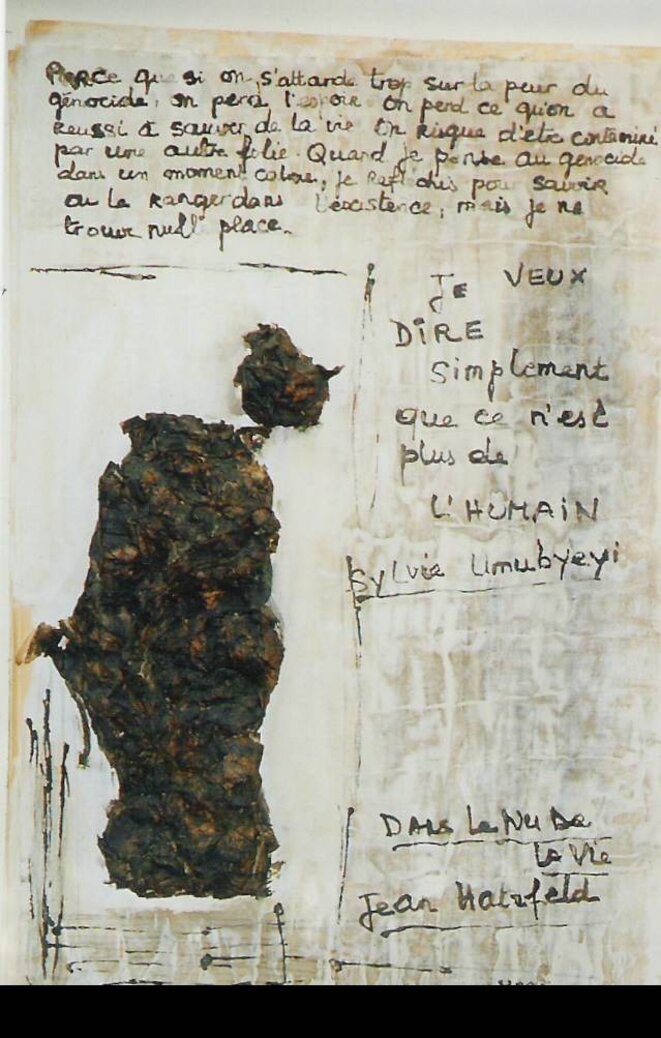 Parce que si on s'attarde trop sur la peur du
génocide, on perd l'espoir on perd ce qu'on a
reussi à sauver de la vie On risque d'être contaminé
par une autre folie. Quand je pense au genocide
dans un moment calme, je reflechis pour savoir
ou le Ranger dans l'éxistence, mais je ne
trouve null place.
Je VEUX
DiRE
simplement
que ce n'est
plus de
L'HUMAiN
Sylvie Umubyeyi
DANS Le NU De
La Vie
Jean Hatzfeld